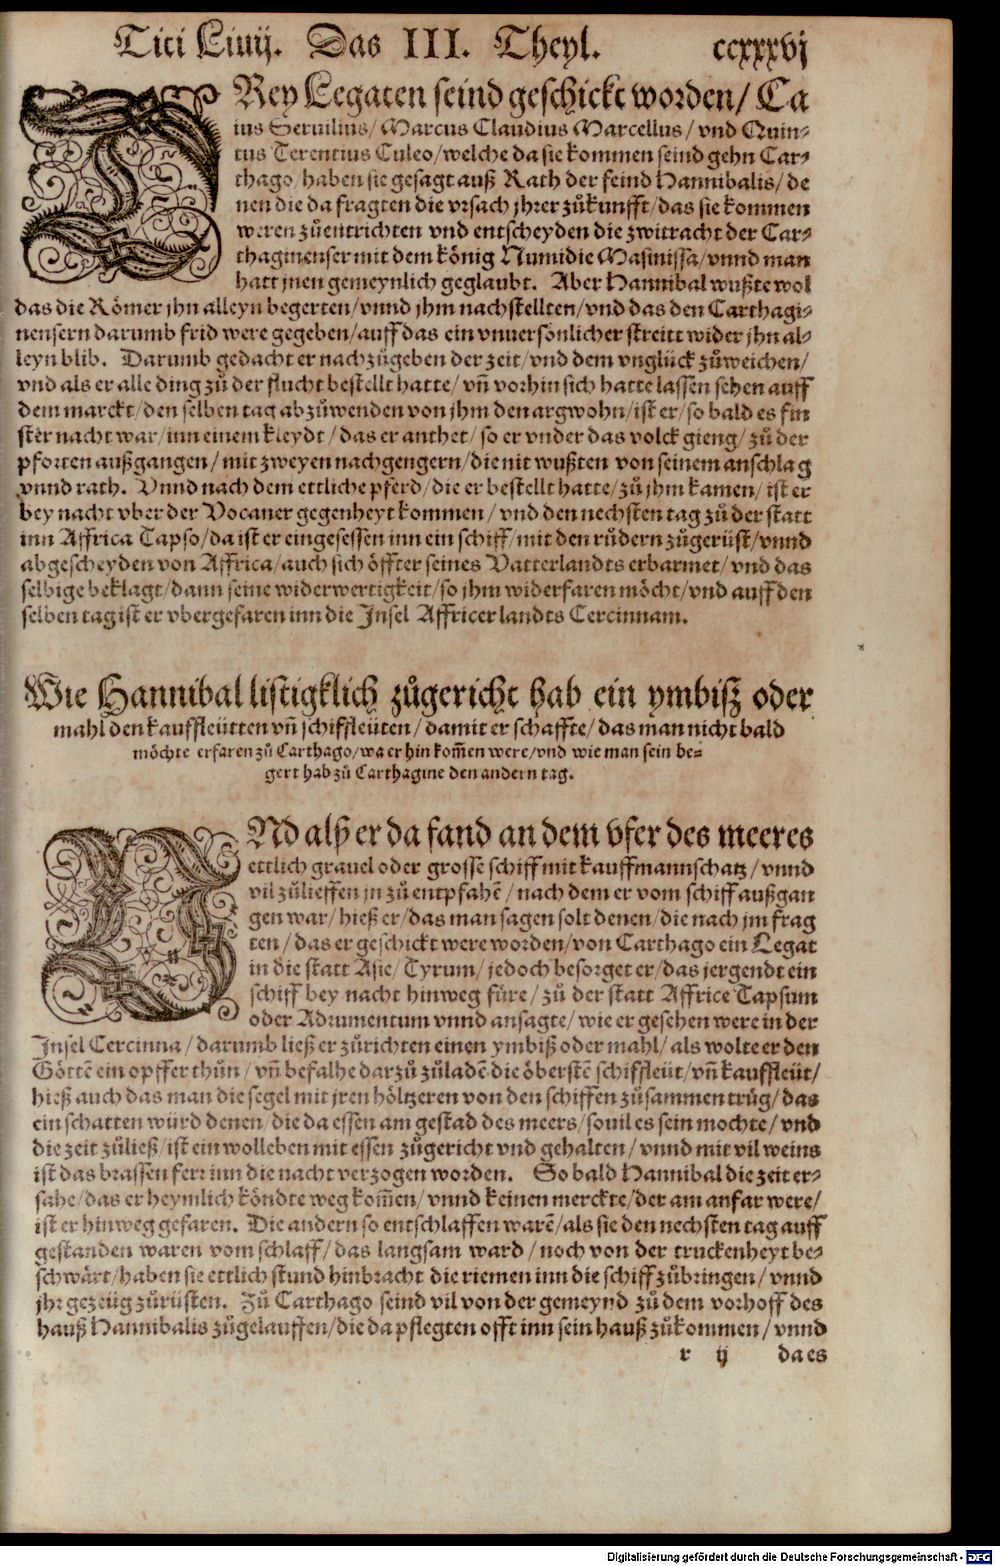 Titi Liuij. Das III. Theyl. ccxxxvj
DRey Legaten seind geschickt worden/ Ca
ius Seruilius/ Marcus Claudius Marcellus/ vnd Quin⸗
tus Terentius Culeo/ welche da sie kommen seind gehn Car⸗
thago/ haben sie gesagt auß Rath der feind Hannibalis/ de
nen die da fragten die vrsach jhrer zůkunfft/ das sie kommen
weren zůentrichten vnd entscheyden die zwitracht der Car⸗
thaginenser mit dem könig Numidie Masinissa/ vnnd man
hatt jnen gemeynlich geglaubt. Aber Hannibal wußte wol
das die Römer jhn alleyn begerten/ vnnd jhm nachstellten/ vnd das den Carthagi⸗
nensern darumb frid were gegeben/ auff das ein vnuersönlicher streitt wider jhn al⸗
leyn blib. Darumb gedacht er nachzůgeben der zeit/ vnd dem vnglück zůweichen/
vnd als er alle ding zů der flucht bestellt hatte/ vñ vorhin sich hatte lassen sehen auff
dem marckt/ den selben tag abzůwenden von jhm den argwohn/ ist er/ so bald es fin
ster nacht war/ inn einem kleydt/ das er anthet/ so er vnder das volck gieng/ zů der
pforten außgangen/ mit zweyen nachgengern/ die nit wußten von seinem anschlag
vnnd rath. Vnnd nach dem ettliche pferd/ die er bestellt hatte/ zů jhm kamen/ ist er
bey nacht vber der Vocaner gegenheyt kommen/ vnd den nechsten tag zů der statt
inn Affrica Tapso/ da ist er eingesessen inn ein schiff/ mit den růdern zůgerüst/ vnnd
abgescheyden von Affrica/ auch sich öffter seines Vatterlandts erbarmet/ vnd das
selbige beklagt/ dann seine widerwertigkeit/ so jhm widerfaren möcht/ vnd auff den
selben tag ist er vbergefaren inn die Insel Affricer landts Cercinnam.
Wie Hannibal listigklich zůgericht hab ein ymbisz oder
mahl den kauffleütten vñ schiffleüten/ damit er schaffte/ das man nicht bald
möchte erfaren zů Carthago/ wa er hin kom̃en were/ vnd wie man sein be⸗
gert hab zů Carthagine den andern tag.
VNd alß er da fand an dem vfer des meeres
ettlich grauel oder grosse schiff mit kauffmannschatz/ vnnd
vil zůlieffen jn zů entpfahẽ/ nach dem er vom schiff außgan
gen war/ hieß er/ das man sagen solt denen/ die nach jm frag
ten/ das er geschickt were worden/ von Carthago ein Legat
in die statt Asie/ Tyrum/ jedoch besorget er/ das jergendt ein
schiff bey nacht hinweg füre/ zů der statt Affrice Tapsum
oder Adrumentum vnnd ansagte/ wie er gesehen were in der
Insel Cercinna/ darumb ließ er zůrichten einen ymbiß oder mahl/ als wolte er den
Göttẽ ein opffer thůn/ vñ befalhe darzů zůladẽ die öberstẽ schiffleüt/ vñ kauffleüt/
hieß auch das man die segel mit jren höltzeren von den schiffen zůsammen trůg/ das
ein schatten würd denen/ die da essen am gestad des meers/ souil es sein mochte/ vnd
die zeit zůließ/ ist ein wolleben mit essen zůgericht vnd gehalten/ vnnd mit vil weins
ist das brassen ferr inn die nacht verzogen worden. So bald Hannibal die zeit er⸗
sahe/ das er heymlich köndte weg kom̃en/ vnnd keinen merckte/ der am anfar were/
ist er hinweg gefaren. Die andern so entschlaffen warẽ/ als sie den nechsten tag auff
gestanden waren vom schlaff/ das langsam ward/ noch von der truckenheyt be⸗
schwärt/ haben sie ettlich stund hinbracht die riemen inn die schiff zůbringen/ vnnd
jhr gezeüg zůrüsten. Zů Carthago seind vil von der gemeynd zů dem vorhoff des
hauß Hannibalis zůgelauffen/ die da pflegten offt inn sein hauß zůkommen/ vnnd
r ij da es
Digitalisierung gefördert durch die Deutsche Forschungsgemeinschaft - DFG